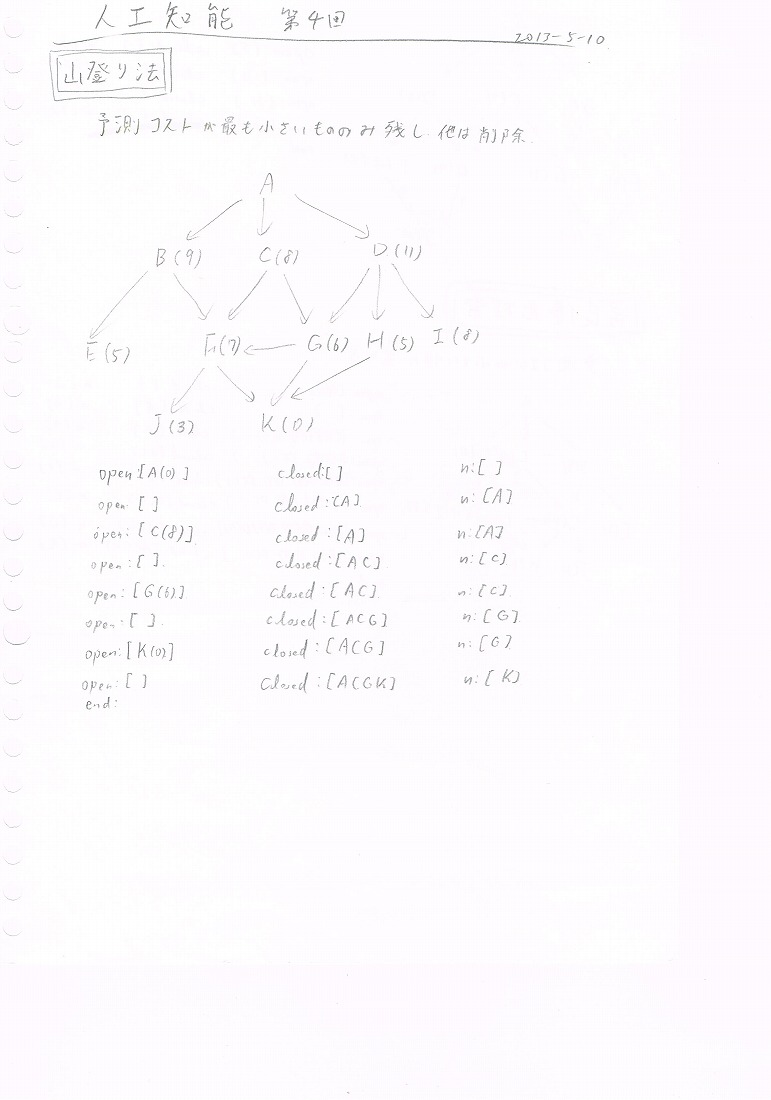 人工知能 第4回
2013-5-10
山登り法
予測コストが最も小さいもののみ残し、他は削除.
A
B(9) C(8) D(11)
E(5) F(7) G(6) H(5) I(8)
J(3) K(0)
open:[A(0)] closed:[] n:[]
open:[] closed:[A] n:[A]
open:[C(8)] closed:[A] n:[A]
open:[] closed:[AC] n:[C]
open:[G(6)] closed:[AC] n:[C]
open:[] closed:[ACG] n:[G]
open:[K(0)] closed:[ACG] n:[G]
open:[] closed:[ACGK] n:[K]
end: